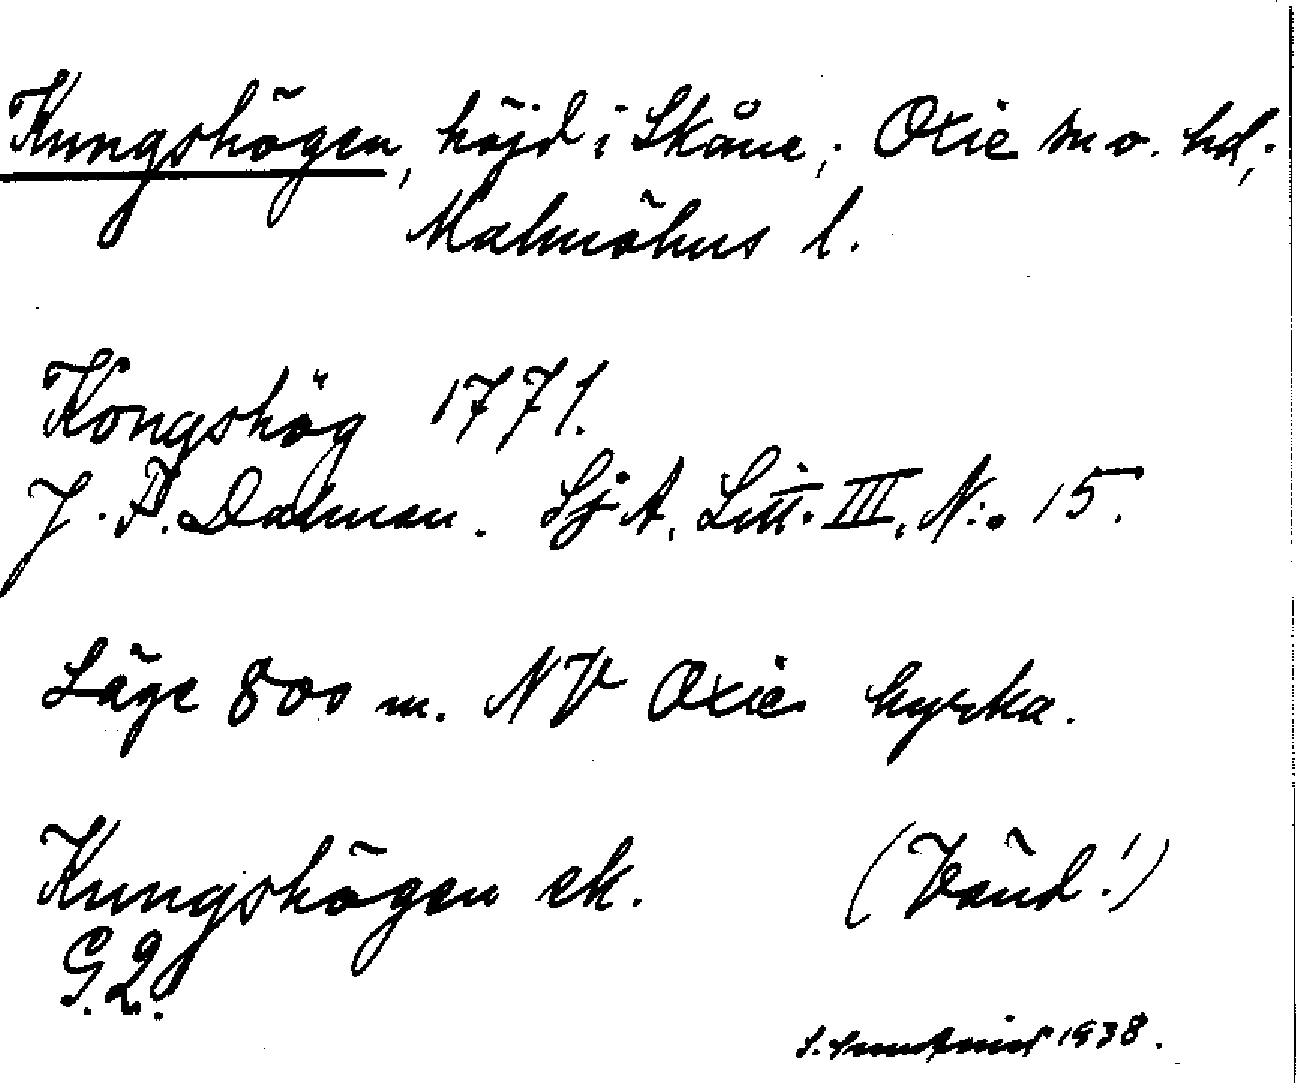 Kungshögen, höjd i Skåne; Oxie sn o. hd,
Malmöhus l.
Kongshög 1771.
J. F. Dalman. Sj A. Litt. III. N:o 15.
Läge 800 m. NV Oxie kyrka.
Kungshögen ek. (Vänd!)
G.2.
S. 1938.